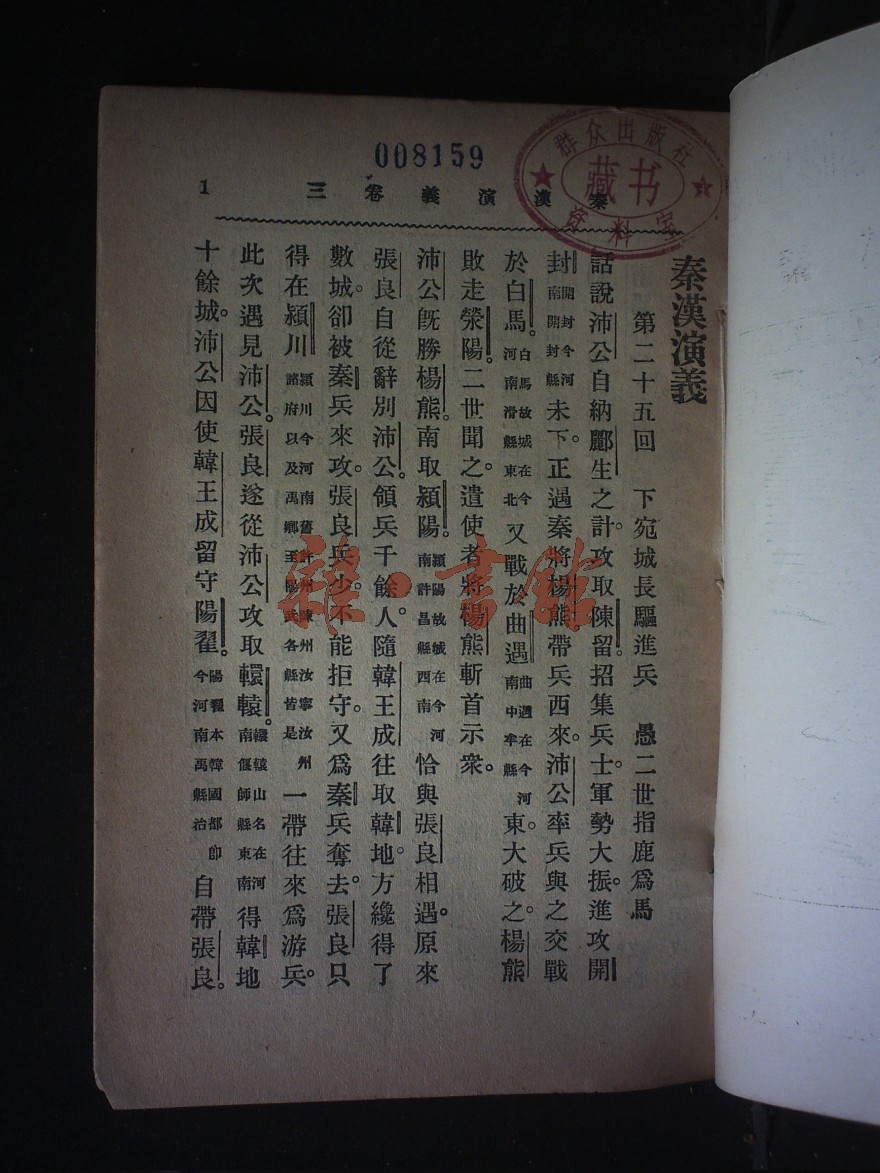 008159
群众出版社
藏书
资料室
秦漢演義卷三
1
秦漢演義
第二十五回 下宛城長驅進兵 愚二世指鹿爲馬
話說沛公自納酈生之計。攻取陳留。招集兵士。軍勢大振。進攻開
封開封今河南開封縣未下。正遇秦將楊熊帶兵西來。沛公率兵與之交戰
於白馬。白馬故城在今河南滑縣東北又戰於曲遇曲遇在今河南中牟縣東。大破之。楊熊
敗走滎陽。二世聞之。遣使者將楊熊斬首示衆。
沛公旣勝楊熊。南取潁陽。潁陽故城在今河南許昌縣西南恰與張良相遇。原來
張良自從辭別沛公。領兵千餘人。隨韓王成往取韓地。方纔得了
數城。卻被秦兵來攻。張良兵少。不能拒守。又爲秦兵奪去。張良只
得在潁川潁川今河南舊許州陳州汝寧汝州諸府以及禹鄉至陽武各縣皆是一帶往來爲游兵。
此次遇見沛公。張良遂從沛公攻取轘轅。轘轅山名在河南偃師縣東南得韓地
十餘城。沛公因使韓王成留守陽翟。陽翟本韓國都卽今河南禹縣治自帶張良。
雜·書館